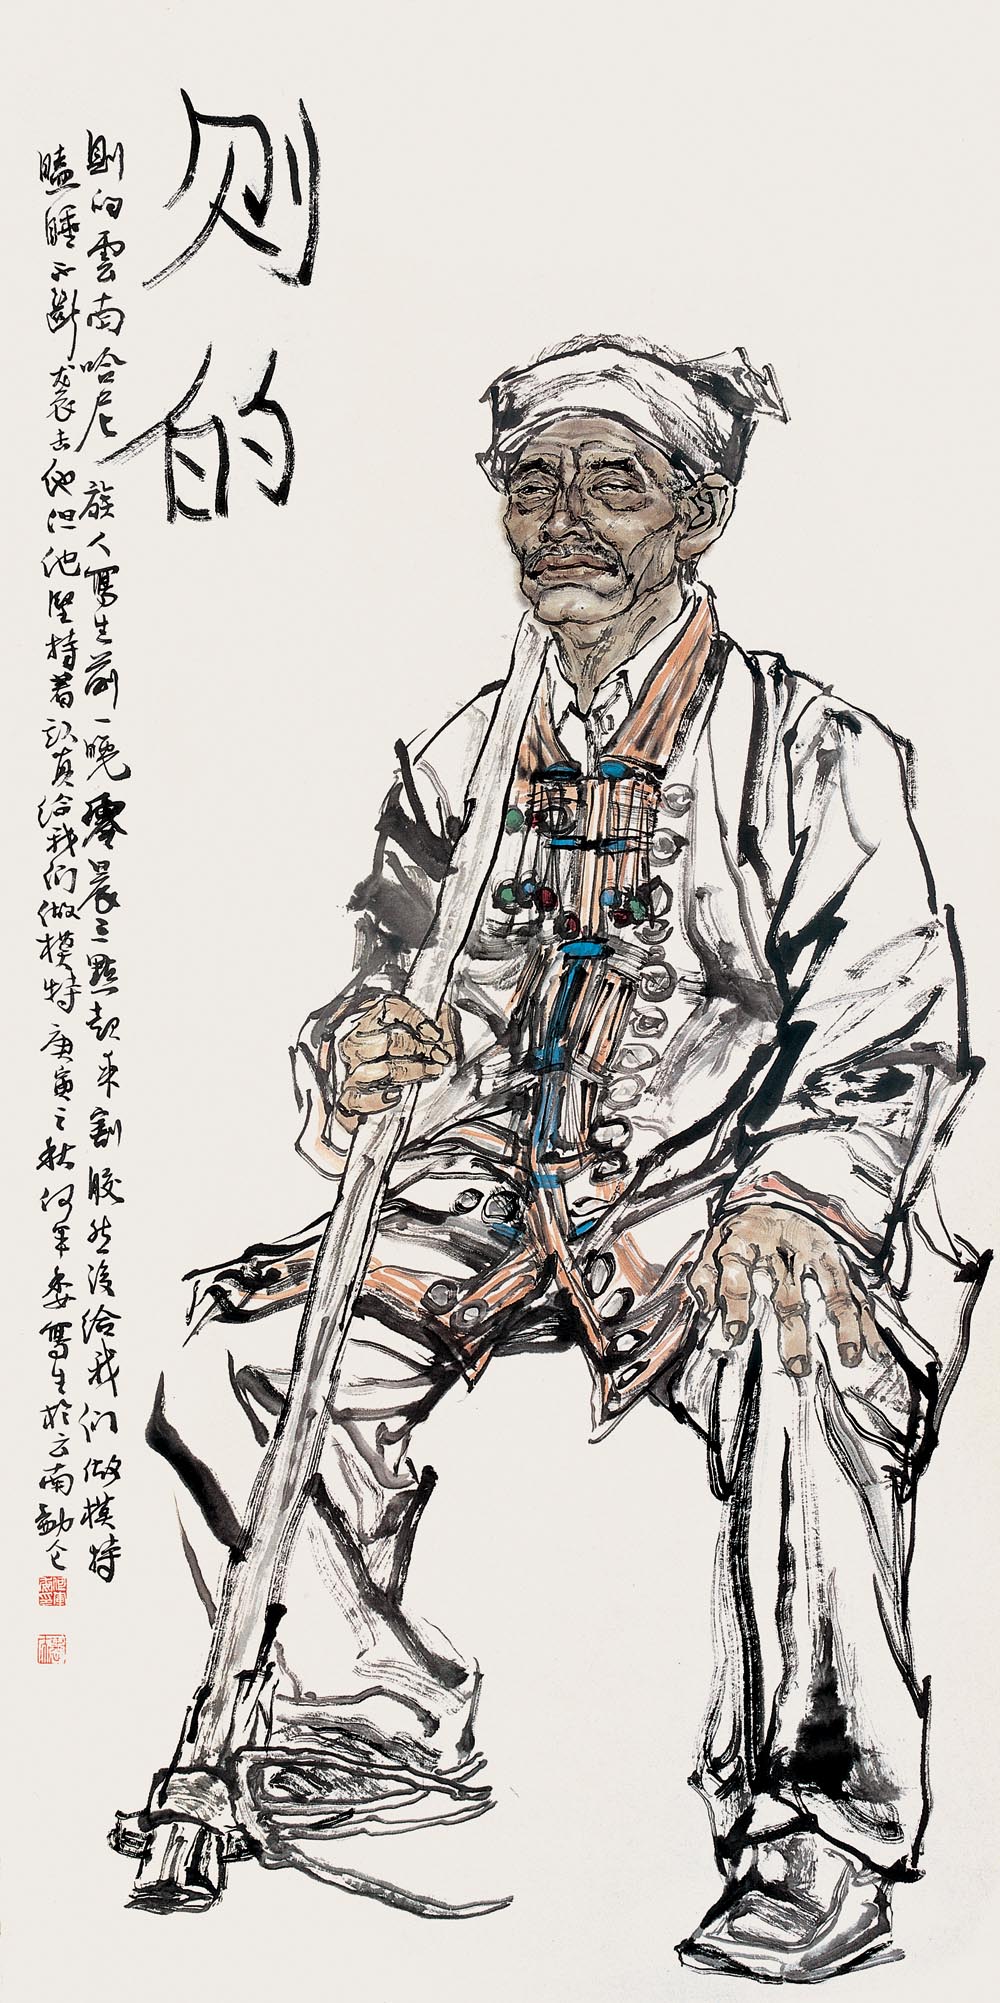 则的
則的雲南哈尼族人寫生前一晚零晨三點起来割胶然後给我们做模特
瞌睡不斷袭击他但他坚持着认真给我们做模特庚寅之秋何军委寫生於云南勐仑